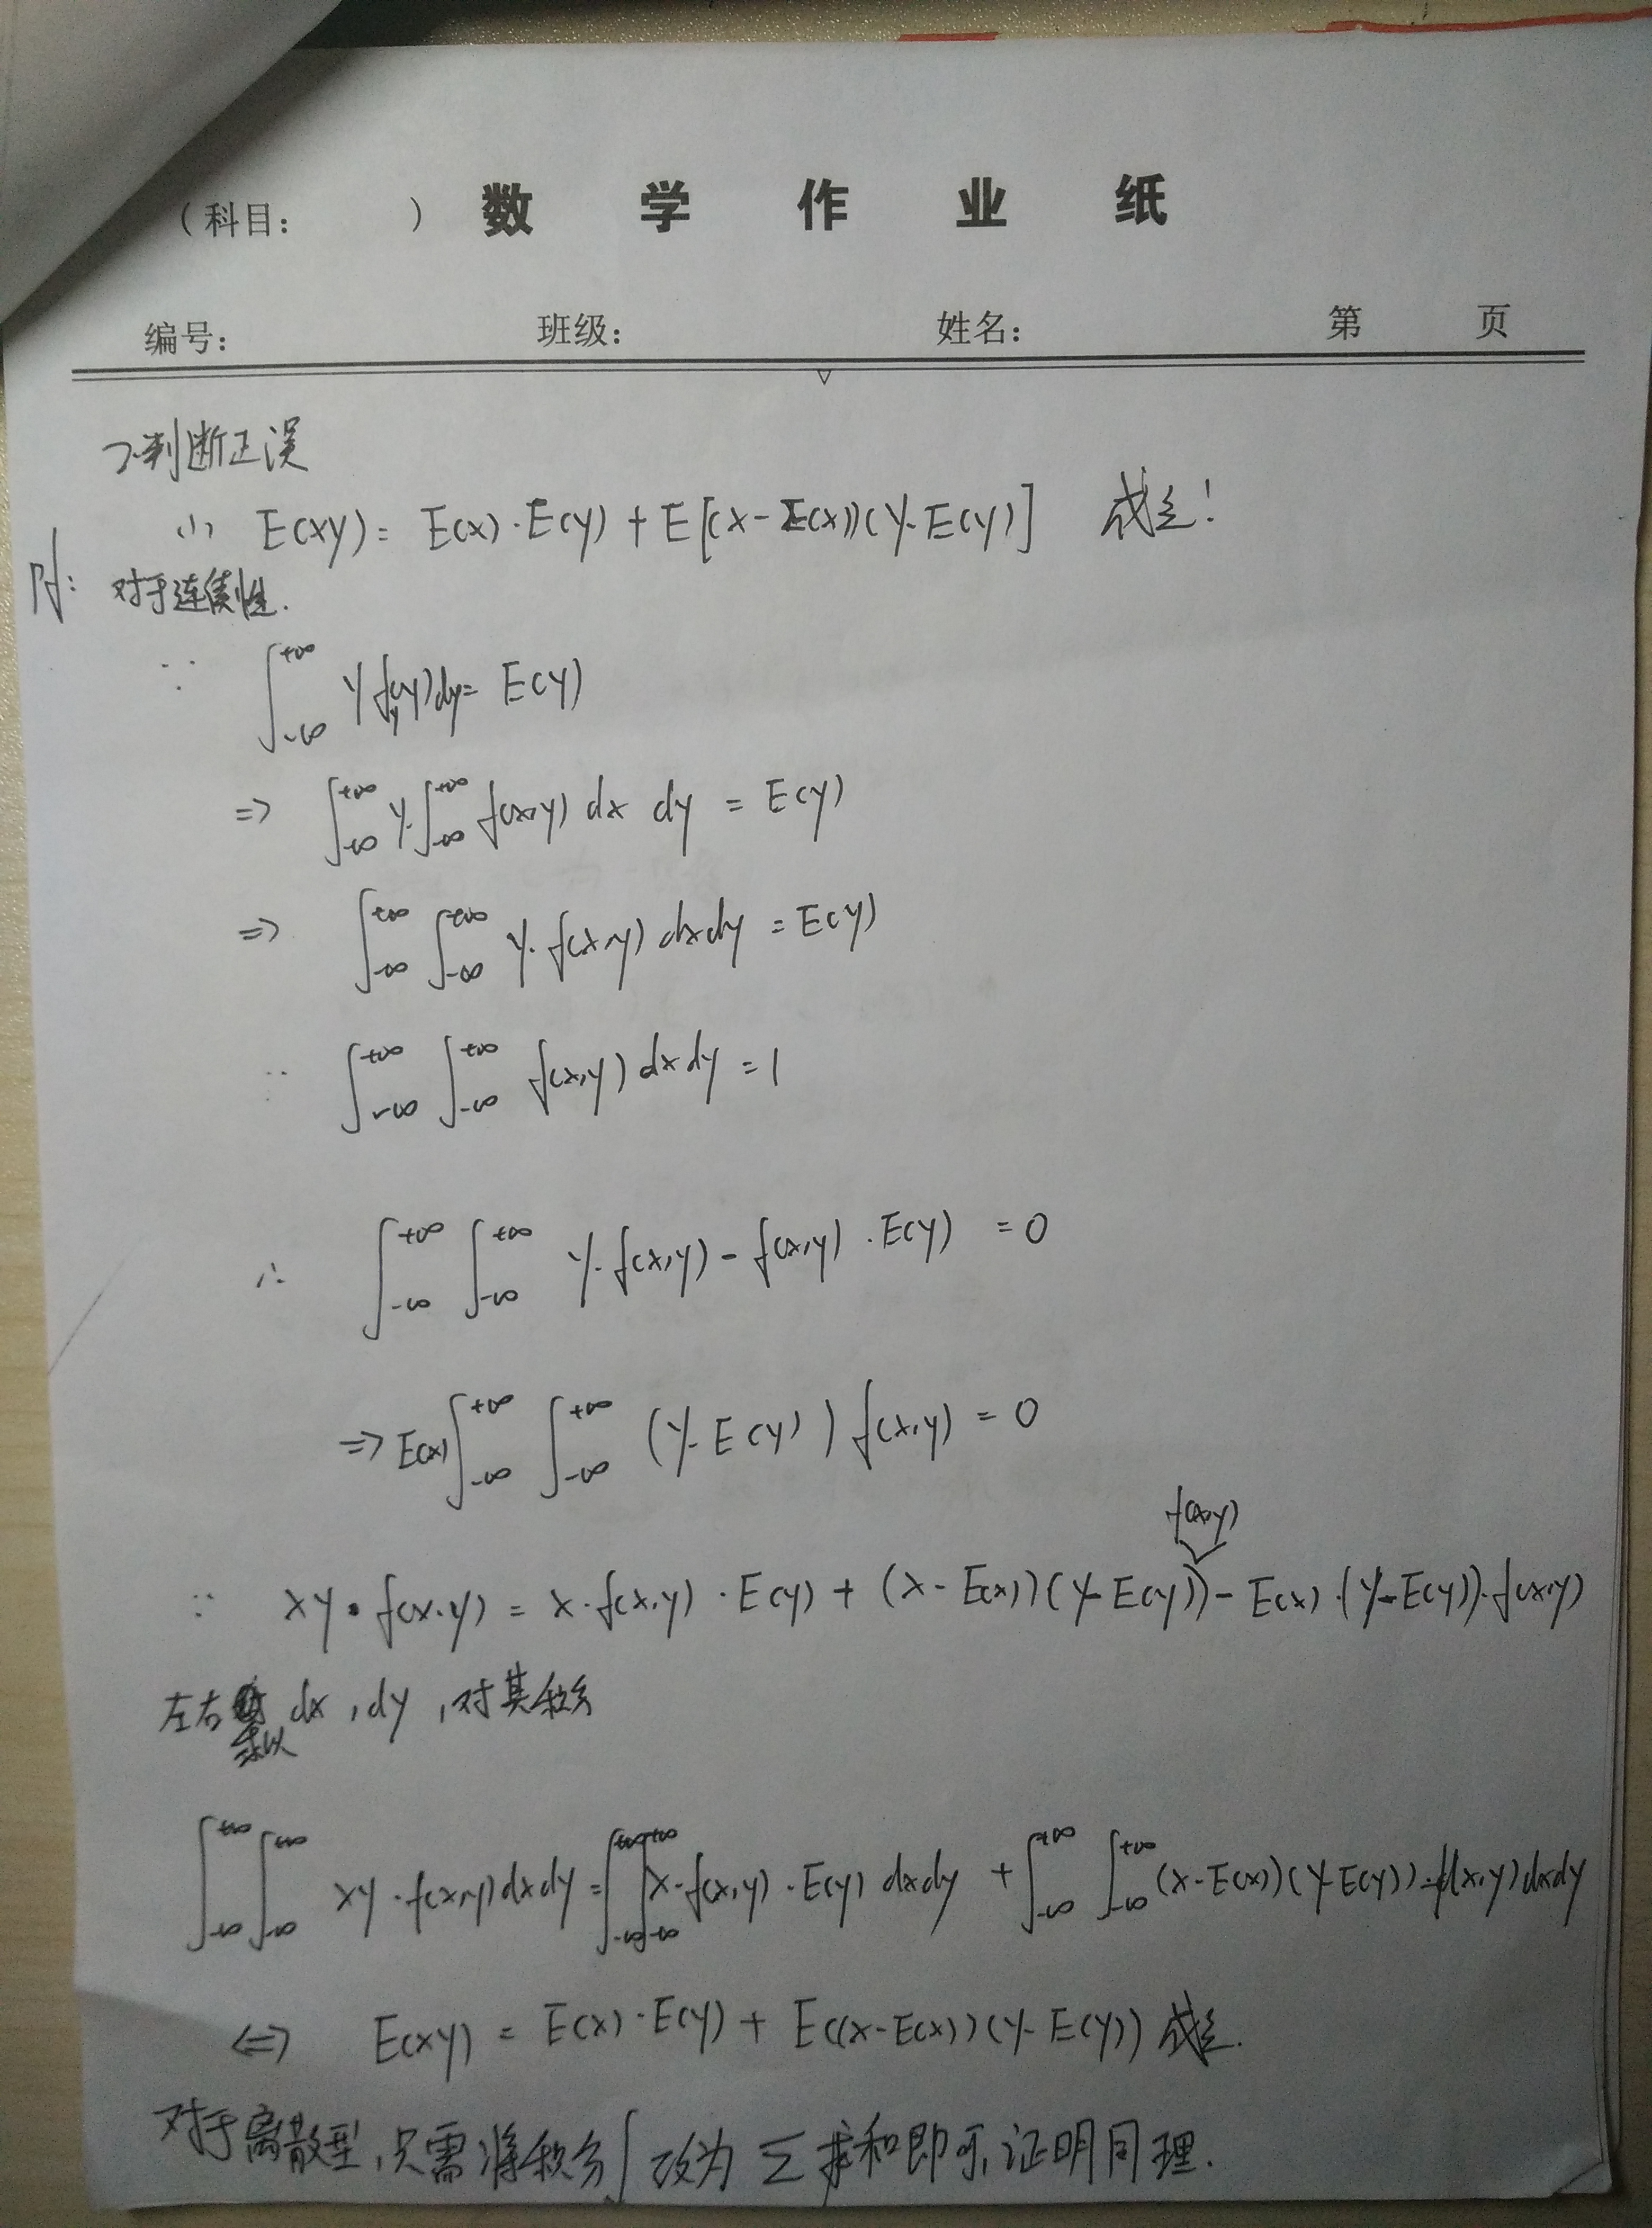 (科目:          ) 数 学 作 业 纸
编号:          班级:          姓名:          第     页
2.判断正误
(1) E(XY) = E(X)·E(Y) + E[(X-E(X))(Y-E(Y)] 成立!
Pf: 对于连续性.
∵ ∫_{-∞}^{+∞} y f_Y(y)dy = E(Y)
=> ∫_{-∞}^{+∞} y·∫_{-∞}^{+∞} f(x,y) dx dy = E(Y)
=> ∫_{-∞}^{+∞} ∫_{-∞}^{+∞} y·f(x,y) dxdy = E(Y)
∵ ∫_{-∞}^{+∞} ∫_{-∞}^{+∞} f(x,y) dxdy = 1
∴ ∫_{-∞}^{+∞} ∫_{-∞}^{+∞} y·f(x,y) - f(x,y)·E(Y) = 0
=> E(X) ∫_{-∞}^{+∞} ∫_{-∞}^{+∞} (y-E(Y)) f(x,y) = 0
f(x,y)
∵ xy·f(x,y) = x·f(x,y)·E(Y) + (x-E(X))(y-E(Y)) - E(X)·(y-E(Y))·f(x,y)
左右乘 dx, dy, 对其积分
∫_{-∞}^{+∞} ∫_{-∞}^{+∞} xy·f(x,y)dxdy = ∫_{-∞}^{+∞} ∫_{-∞}^{+∞} x·f(x,y)·E(Y) dxdy + ∫_{-∞}^{+∞} ∫_{-∞}^{+∞} (x-E(X))(y-E(Y))·f(x,y)dxdy
<=> E(XY) = E(X)·E(Y) + E((X-E(X))(Y-E(Y)) 成立.
对于离散型,只需将积分∫改为 Σ 求和即可,证明同理.